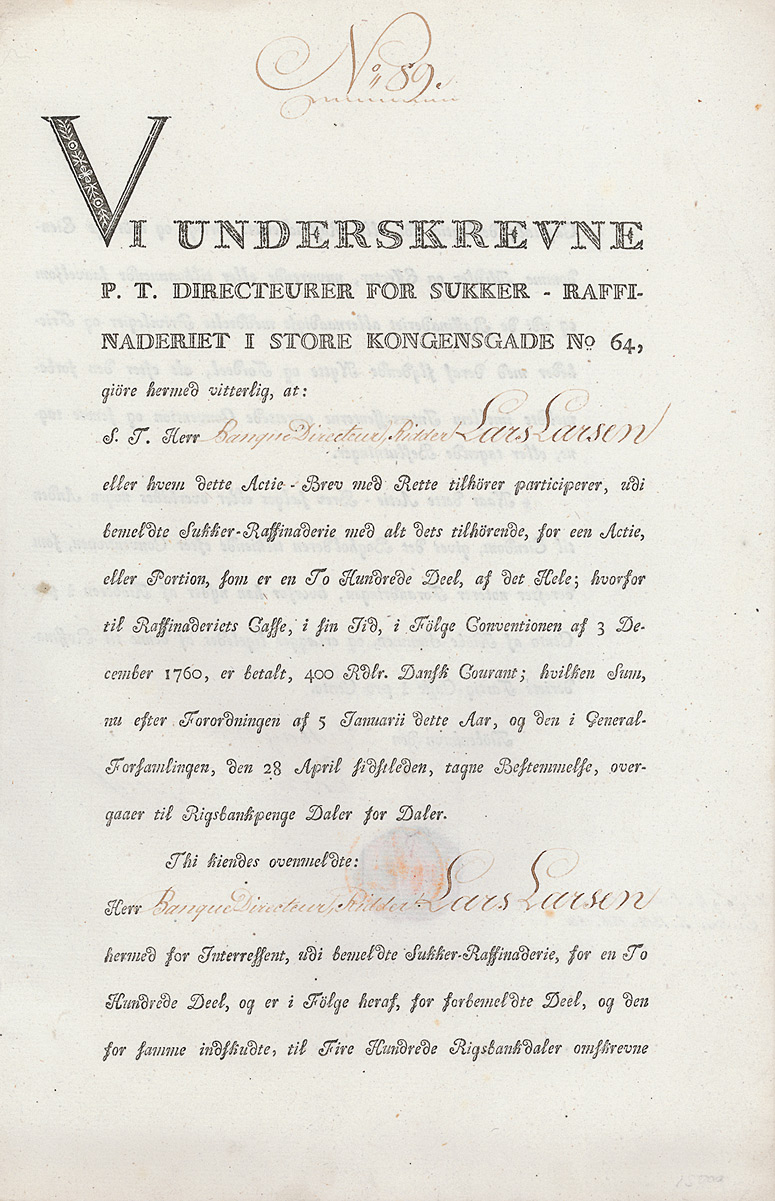 No 89.
VI UNDERSKREVNE
P. T. DIRECTEURER FOR SUKKER - RAFFI-
NADERIET I STORE KONGENSGADE No 64,
giöre hermed vitterlig, at:
S. T. Herr Banque Directeur, Ridder Lars Larsen
eller hvem dette Actie - Brev med Rette tilhörer participerer, udi
bemeldte Sukker-Raffinaderie med alt dets tilhörende, for een Actie,
eller Portion, ſom er en To Hundrede Deel, af det Hele; hvorfor
til Raffinaderiets Caſſe, i ſin Tid, i Fölge Conventionen af 3 De-
cember 1760, er betalt, 400 Rdlr. Danſk Courant; hvilken Sum,
nu efter Forordningen af 5 Januarii dette Aar, og den i General-
Forſamlingen, den 28 April ſidſtleden, tagne Beſtemmelſe, over-
gaaer til Rigsbankpenge Daler for Daler.
Thi kiendes ovenmeldte:
Herr Banque Directeur, Ridder Lars Larsen
hermed for Interreſſent, udi bemeldte Sukker-Raffinaderie, for en To
Hundrede Deel, og er i Fölge heraf, for forbemeldte Deel, og den
for ſamme indſkudte, til Fire Hundrede Rigsbankdaler omſkrevne